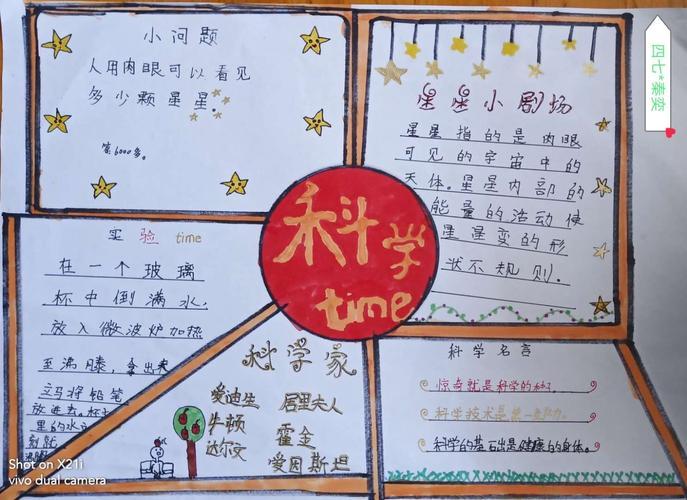 小问题
人用肉眼可以看见
多少颗星星。
答6000多。
星星小剧场
星星指的是肉眼
可见的宇宙中的
天体。星星内部的
能量的活动使
星星变的形
状不规则。
四七*秦奕
科学
time
实验 time
在一个玻璃
杯中倒满水,
放入微波炉加热
至沸腾,拿出来
立马将铅笔
放进去。杯子
里的水
科学家
爱迪生 居里夫人
牛顿 霍金
达尔文 爱因斯坦
科学名言
惊奇就是科学的种子。
科学技术是第一生产力。
科学的基石出是健康的身体。
Shot on X21i
vivo dual camera